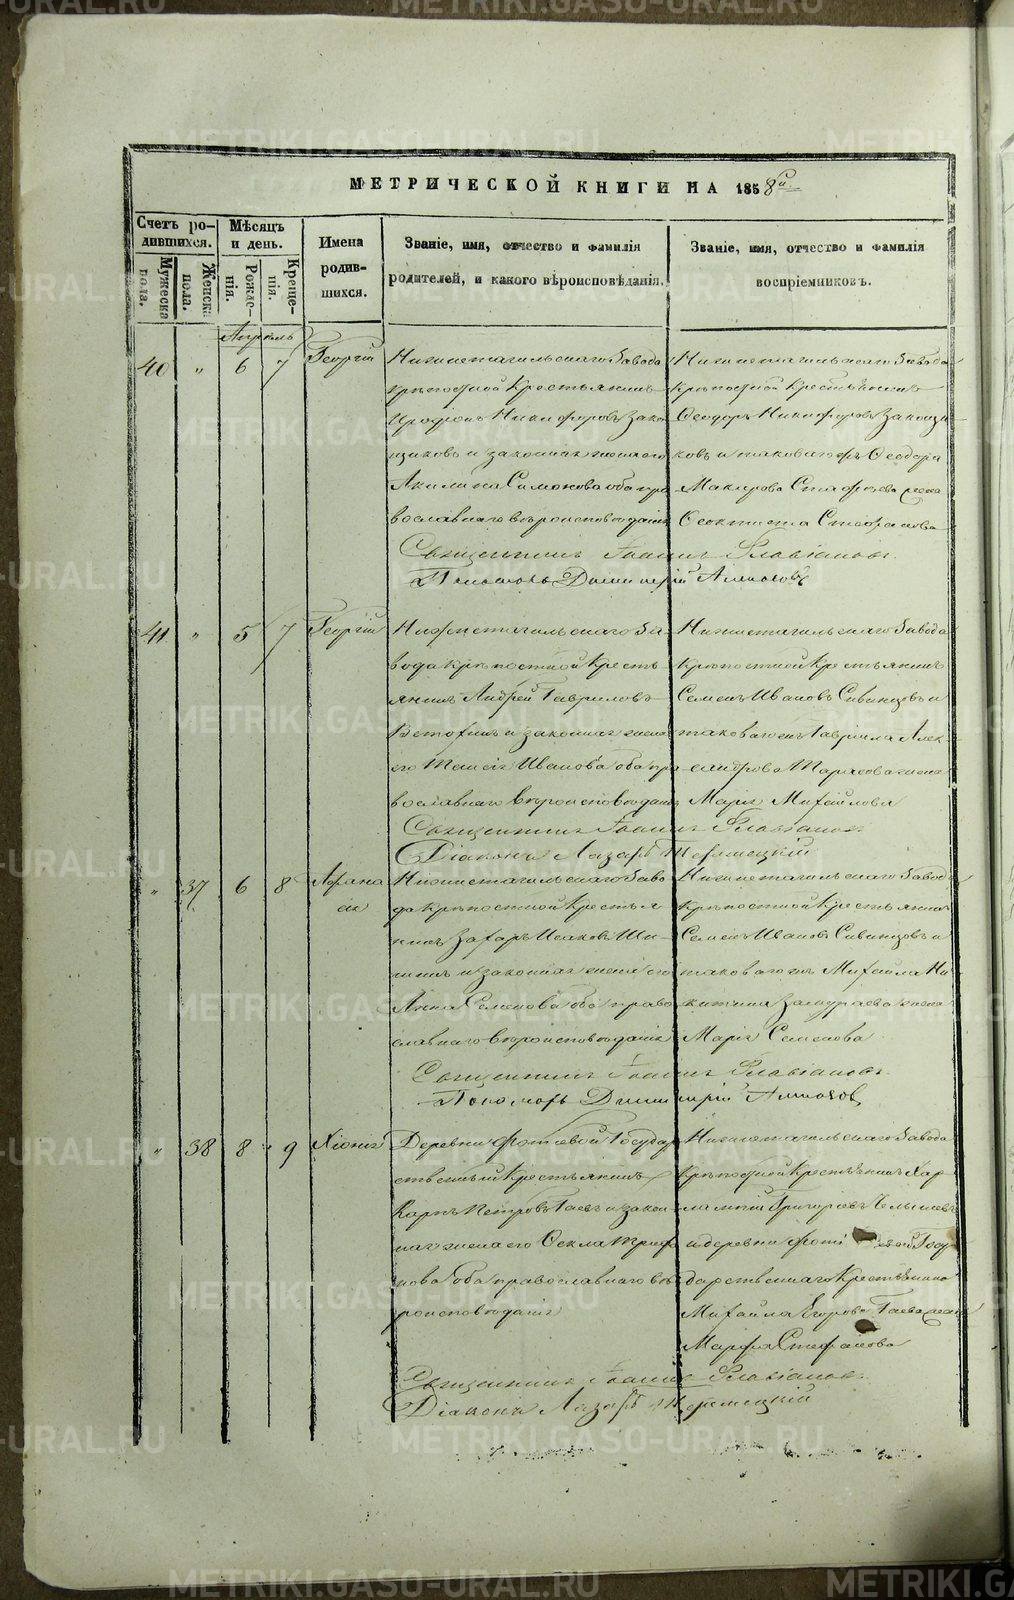 МЕТРИЧЕСКОЙ КНИГИ НА 1858й
Счетъ родившихся.
Мужеска пола.
Женска пола.
Мѣсяцъ и день.
Рожденія.
Крещенія.
Имена родившихся.
Званіе, имя, отчество и фамилія родителей, и какого вѣроисповѣданія.
Званіе, имя, отчество и фамилія воспріемниковъ.
Апрель
40 " 6 7 Георгій
Нижнетагильскаго Завода
крѣпостной Крестьянинъ
Иродіонъ Никифоровъ Зако
щиковъ и законная жена его
Акилина Симонова оба пра
вославнаго вѣроисповѣданія
Нижнетагильскаго Завода
крѣпостной Крестьянинъ
Ѳеодоръ Никифоровъ Закощи
ковъ и таковаго жъ Ѳеодора
Макарова жена
Ѳеоктиста Стефанова
Священникъ Іоаннъ Флавіановъ
Пономарь Димитрій
41 " 5 7 Георгій
Нижнетагильскаго За
вода крѣпостной Кресть
янинъ Андрей Гавриловъ
и законная жена
его Таисія Иванова оба пра
вославнаго вѣроисповѣданія
Нижнетагильскаго Завода
крѣпостной Крестьянинъ
Семенъ Ивановъ Сивинцовъ и
таковаго жъ Гавріила Алек
сандрова жена
Марія Михайлова
Священникъ Іоаннъ Флавіановъ
Діаконъ Лазарь
" 37 6 8 Афана
сія
Нижнетагильскаго Заво
да крѣпостной Крестья
нинъ Захаръ Исаковъ Ши
шинъ и законная жена его
Анна Семенова оба право
славнаго вѣроисповѣданія
Нижнетагильскаго Завода
крѣпостной Крестьянинъ
Семенъ Ивановъ Сивинцовъ и
таковаго жъ Михайла Ни
китина жена
Марія Семенова
Священникъ Іоаннъ Флавіановъ
Пономарь Димитрій
" 38 8 9 Хіонія
Деревни Фотѣевой Государ
ственный Крестьянинъ
Карпъ Петровъ Гаевъ и закон
ная жена его Ѳекла Трифо
нова оба православнаго вѣ
роисповѣданія
Нижнетагильскаго Завода
крѣпостной Крестьянинъ Хар
лампій Григорьевъ Челышевъ
и деревни Фотѣевой Госу
дарственнаго Крестьянина
Михайла Егорова Гаева жена
Марфа Стефанова
Священникъ Іоаннъ Флавіановъ
Діаконъ Лазарь
METRIKI.GASO-URAL.RU